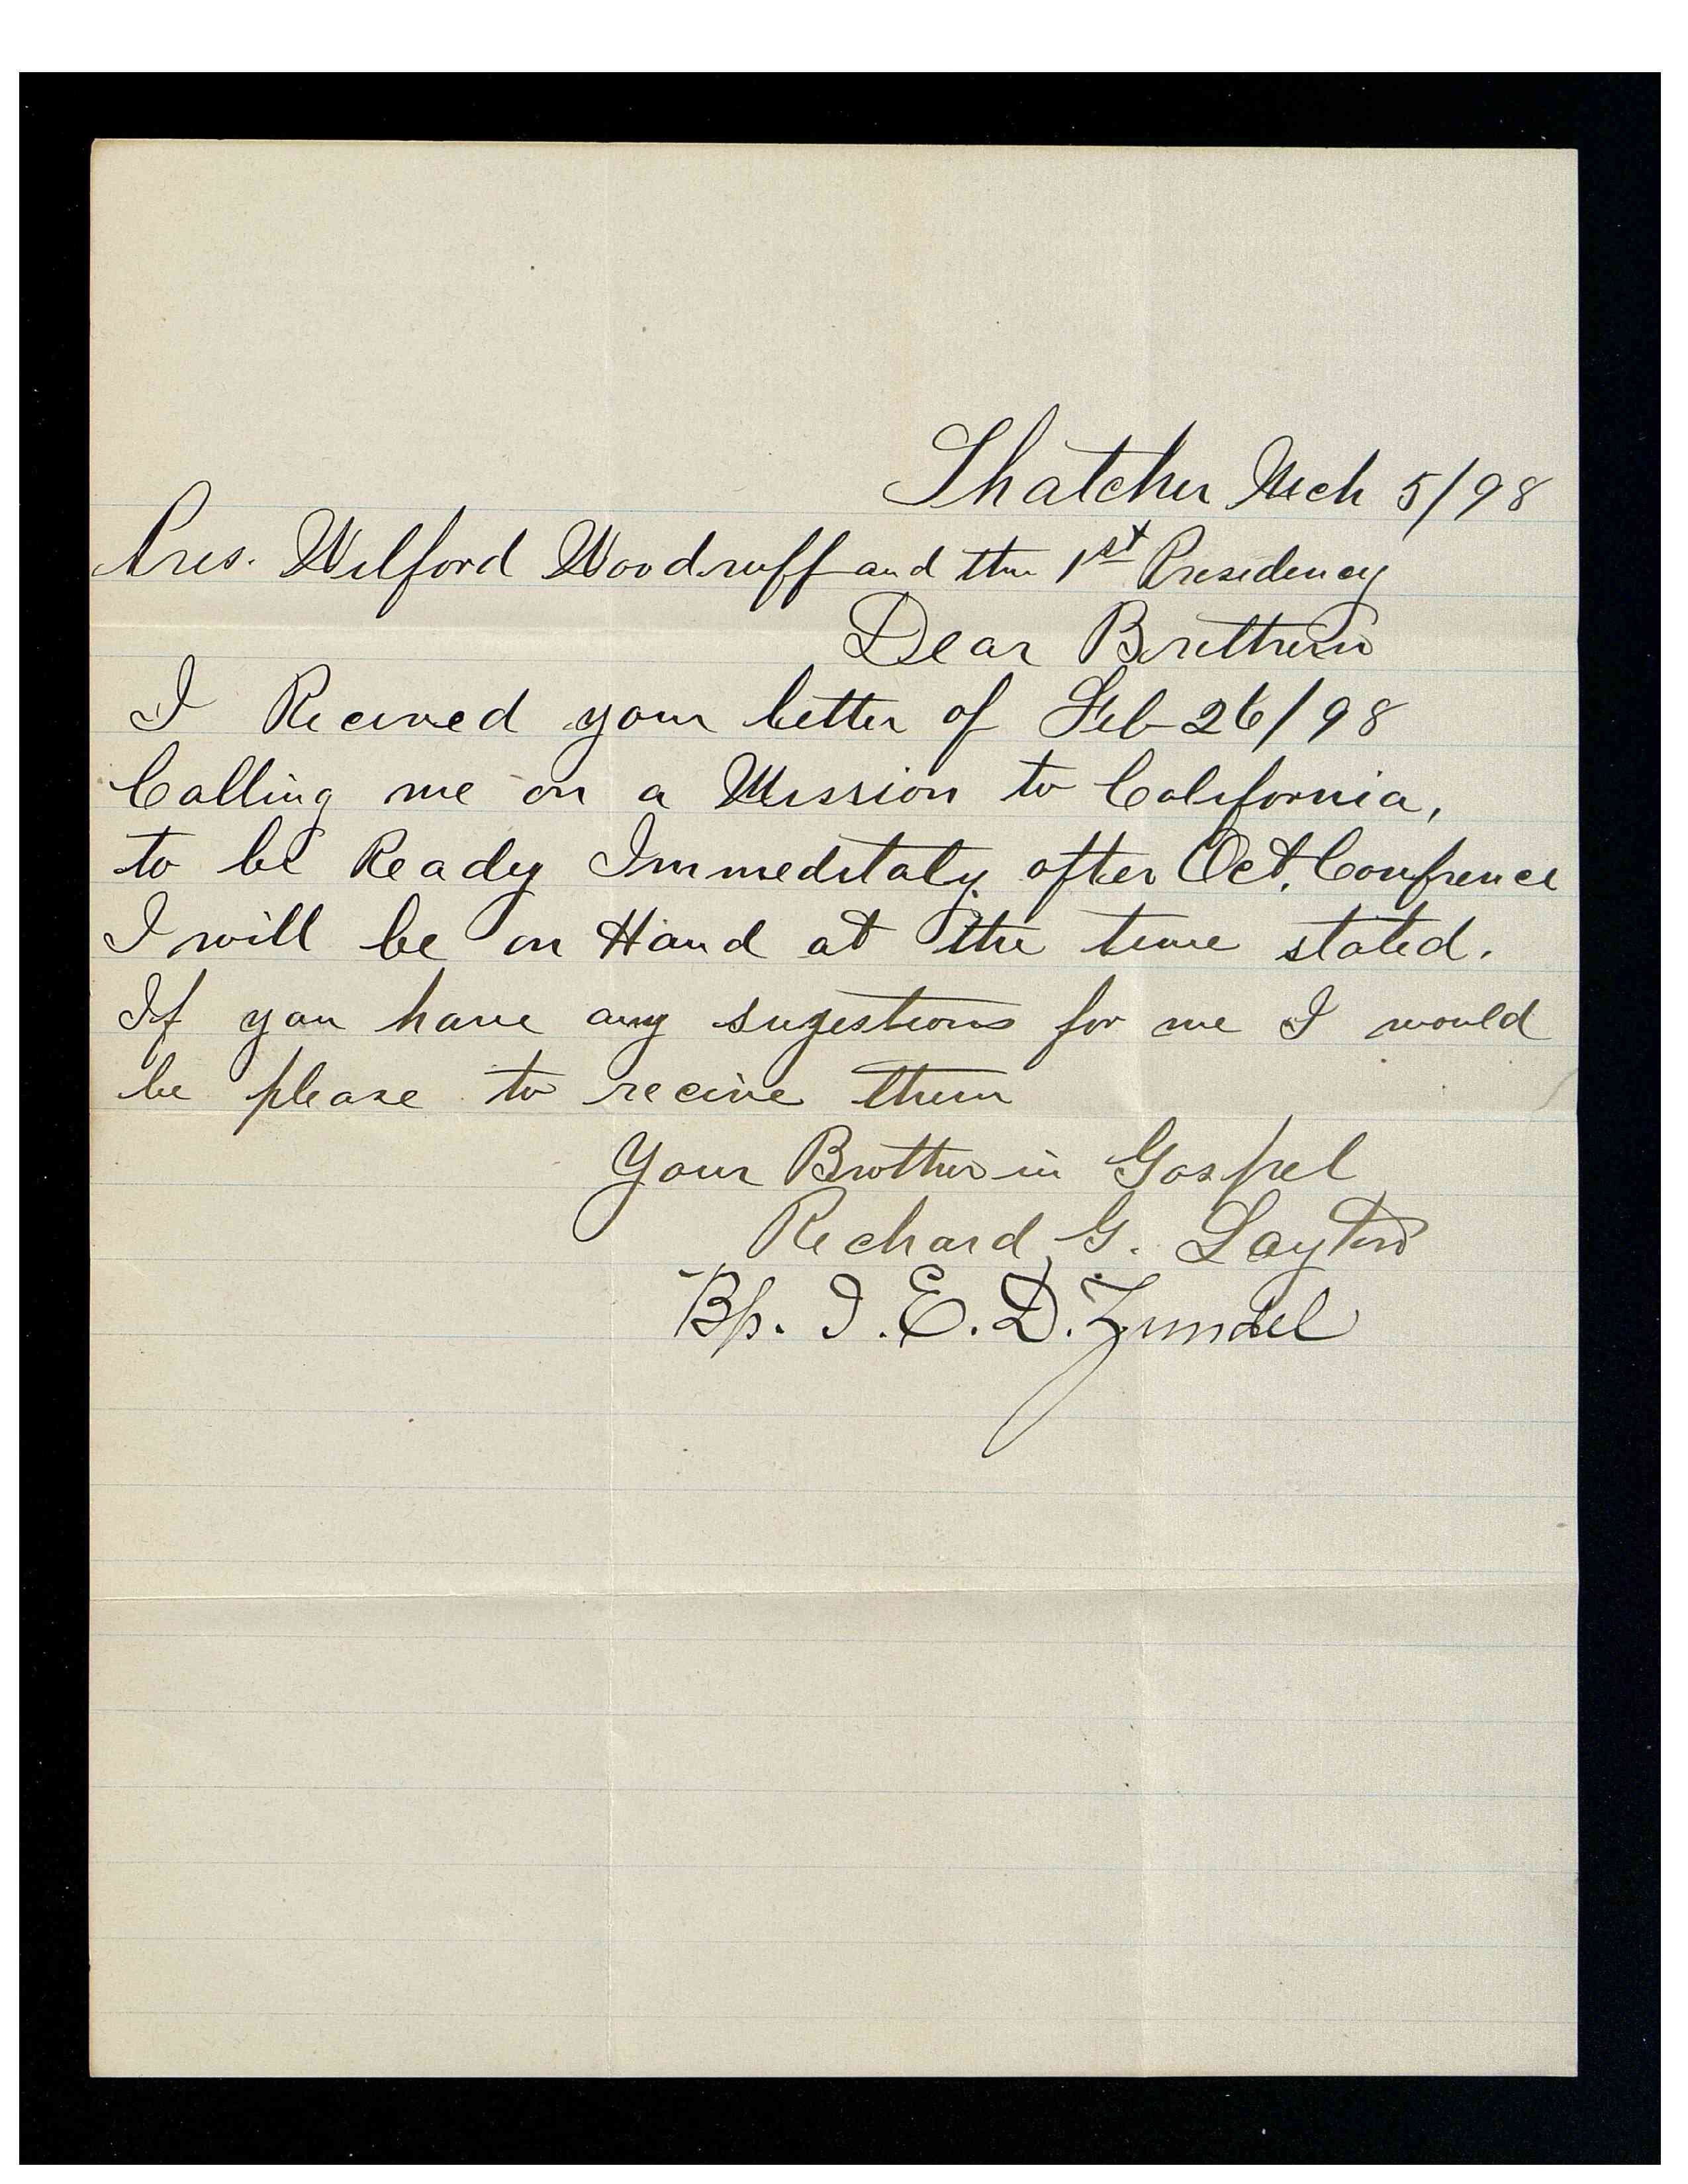 Thatcher Mch 5/98
Pres. Wilford Woodruff and the 1st Presidency
Dear Brethren
I Recived your letter of Feb 26/98
Calling me on a Mission to California,
to be Ready Immeditaly after Oct. Confrence
I will be on Hand at the time stated.
If you have any sugestions for me I would
be please to recive them
Your Brother in Gospel
Richard G. Layton
Bp. I. E. D. Zundel